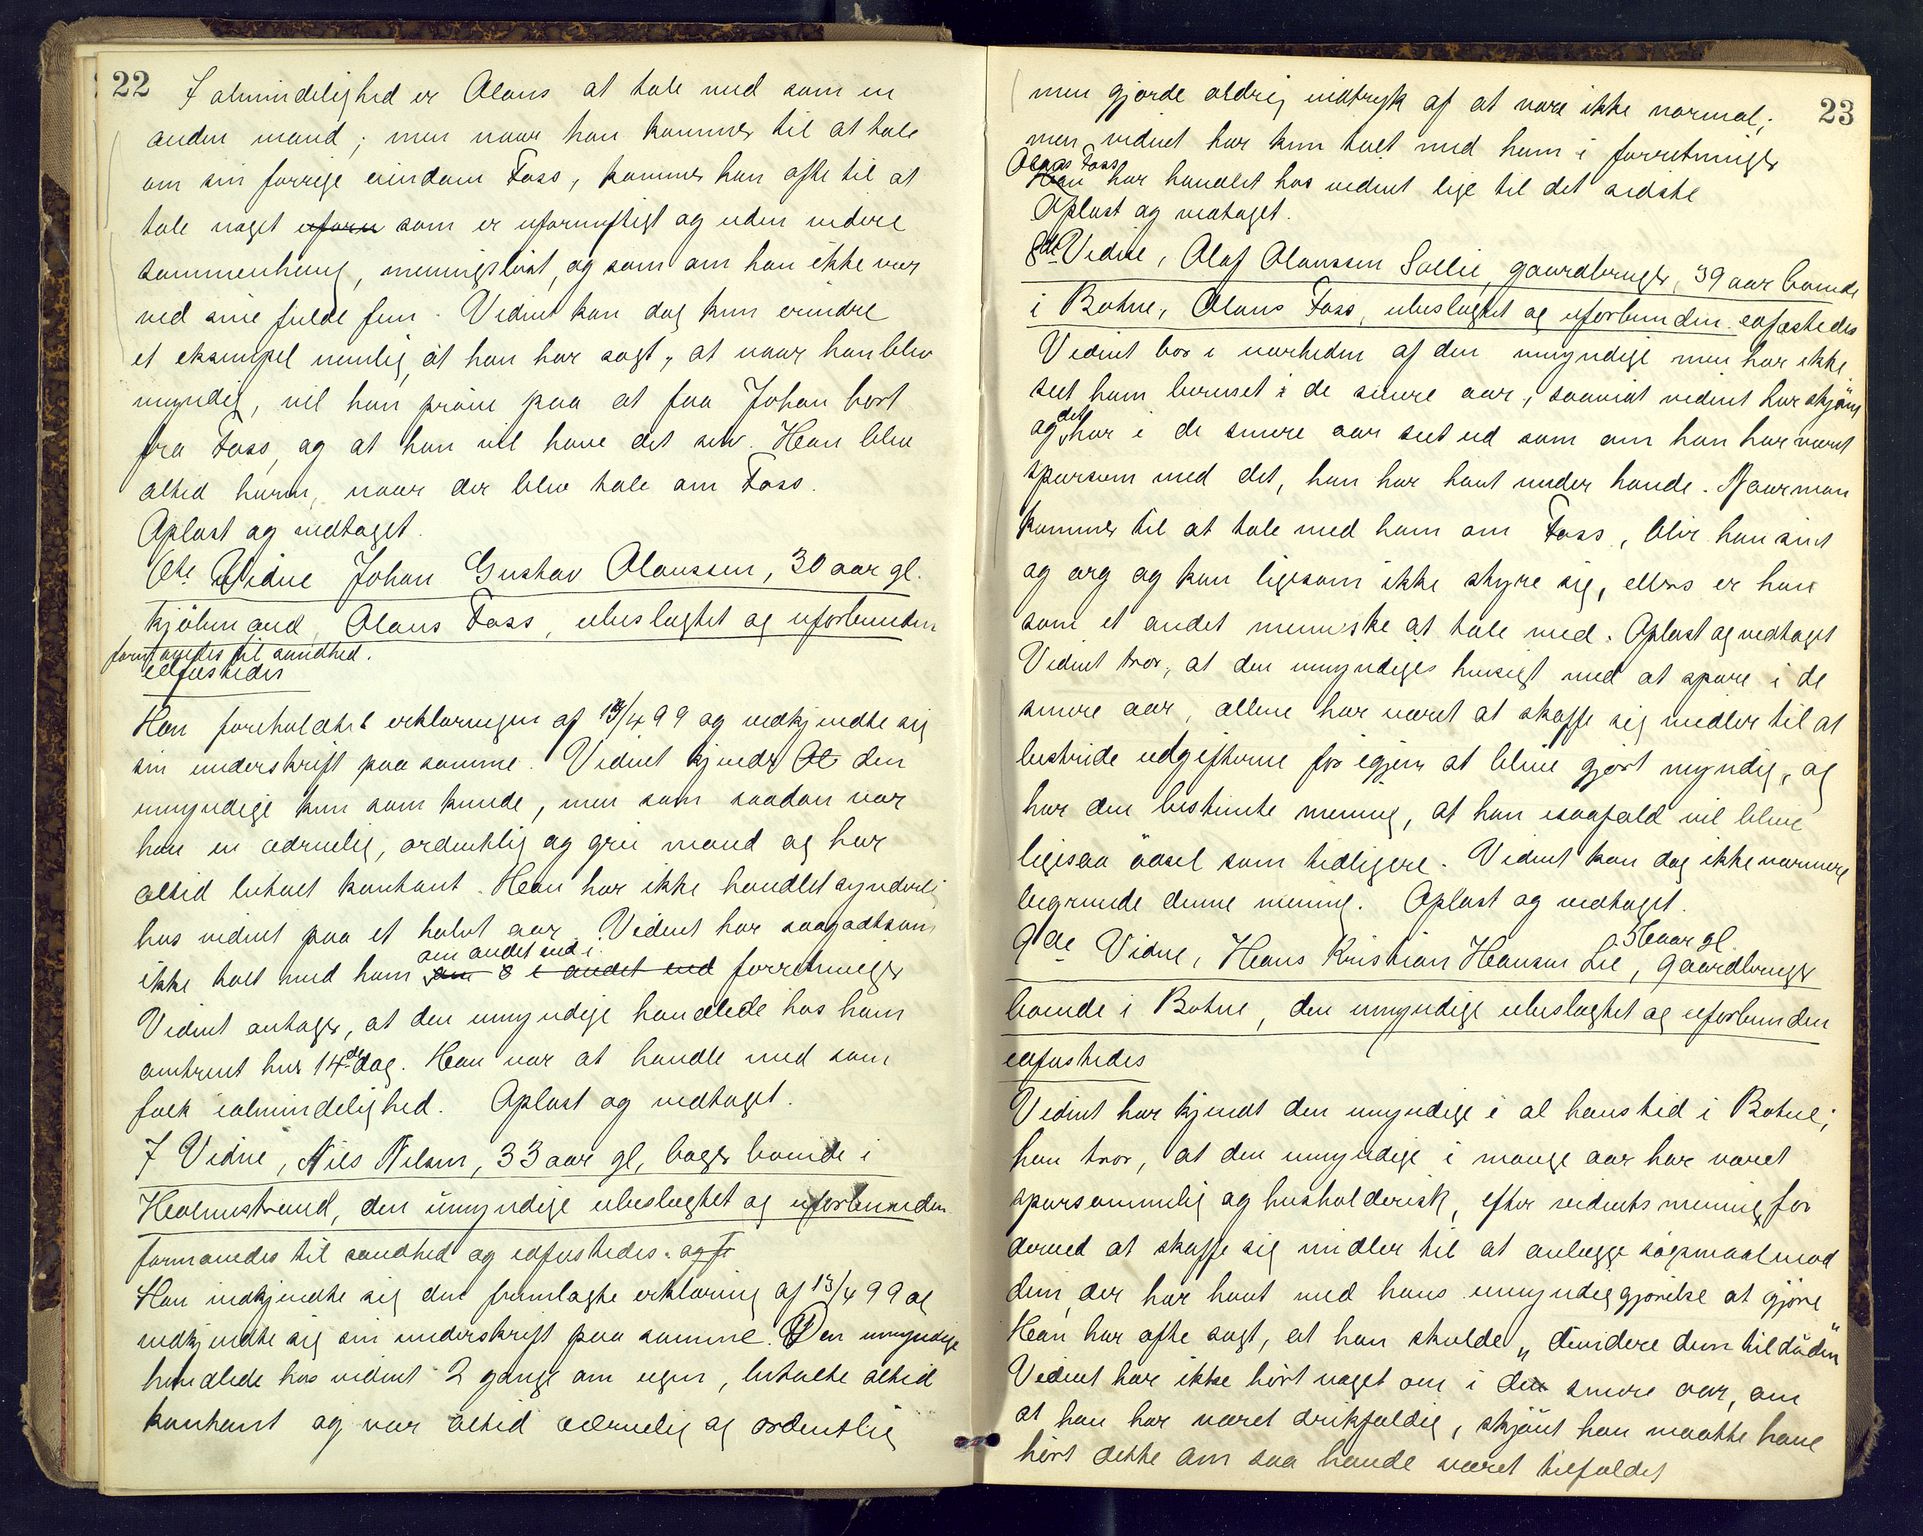 22
I almindelighed er Olaus at tale med som en
anden mand; men naar han kommer til at tale
om sin forrige eiendom Foss, kommer han ofte til at
tale noget uforn som er ufornuftigt og uden videre
sammenheng, meningslöst, og som om han ikke var
ved sine fulde fem. Vidnet kan dog kun erindre
et eksempel nemlig, at han har sagt, at naar han blev
myndig, vil han pröve paa at faa Johan bort
fra Foss, og at han vil have det selv. Han blev
altid harm, naar der blev tale om Foss.
Oplæst og vedtaget.
6te Vidne Johan Gustav Olaussen, 30 aar gl.
kjöbmand, Olaus Foss, ubeslægtet og uforbunden
formanedes til sandhed.
edfæstedes
Han foreholdtes erklæringen af 13/4 99 og vedkjendte sig
sin underskrift paa samme. Vidnet kjender Ol den
umyndige kun som kunde, men som saadan var
han en ædruelig, ordentlig og grei mand og har
altid betalt kontant. Han har ikke handlet synderlig
hos vidnet paa et halvt aar. Vidnet har saagodtsom
om andet end i
ikke talt med ham om & i andet end forretninger
Vidnet antager, at den umyndige handlede hos ham
omtrent hver 14de dag. Han var at handle med som
folk ialmindelighed. Oplæst og vedtaget.
7 Vidne, Nils Nilsen, 33 aar gl, bager boende i
Holmestrand, den umyndige ubeslægtet og uforbunden
formanedes til sandhed og edfæstedes. og fr
Han vedkjendte sig den fremlagte erklæring af 13/4 99 og
vedkjendte sig sin underskrift paa samme. Den umyndige
handlede hos vidnet 2 gange om ugen, betalte altid
kontant og var altid ædruelig og ordentlig
23
men gjorde aldrig indtryk af at være ikke normal;
men vidnet har kun talt med ham i forretninger
Olaus Foss
Han har handlet hos vidnet lige til det sidste
Oplæst og vedtaget.
8de Vidne, Olaf Olaussen Sollie, gaardbruger, 39 aar boende
i Botne, Olaus Foss, ubeslægtet og uforbunden. edfæstedes
Vidnet bor i nærheden af den umyndige men har ikke
seet ham beruset i de senere aar, saavidt vidnet har skjönt
det
og har i de senere aar seet ud som om han har været
sparsom med det, han har havt under hande. Naar man
kommer til at tale med ham om Foss, blir han sint
og arg og kan ligesom ikke styre sig, ellers er han
som et andet menneske at tale med. Oplæst og vedtaget
Vidnet tror, at den umyndiges hensigt med at spare i de
senere aar, allene har været at skaffe sig midler til at
bestride udgifterne for igjen at blive gjort myndig, og
har den bestemte mening, at han isaafald vil blive
ligesaa ödsel som tidligere. Vidnet kan dog ikke nærmere
begrunde denne mening. Oplæst og vedtaget.
9de Vidne, Hans Kristian Hansen Lie, gaardbruger
boende i Botne, den umyndige ubeslægtet og uforbunden
edfæstedes
Vidnet har kjendt den umyndige i al hans tid i Botne;
han tror, at den umyndige i mange aar har været
sparsommelig og husholderisk, efter vidnets mening for
derved at skaffe sig midler til at anlægge sögsmaal mod
dem, der har havt med hans umyndiggjörelse at gjöre
Han har ofte sagt, at han skulde „ dividere dem til döden"
Vidnet har ikke hört noget om i den senere aar, om
at han har været drikfældig, skjönt han maatte have
hört dette om saa havde været tilfældet